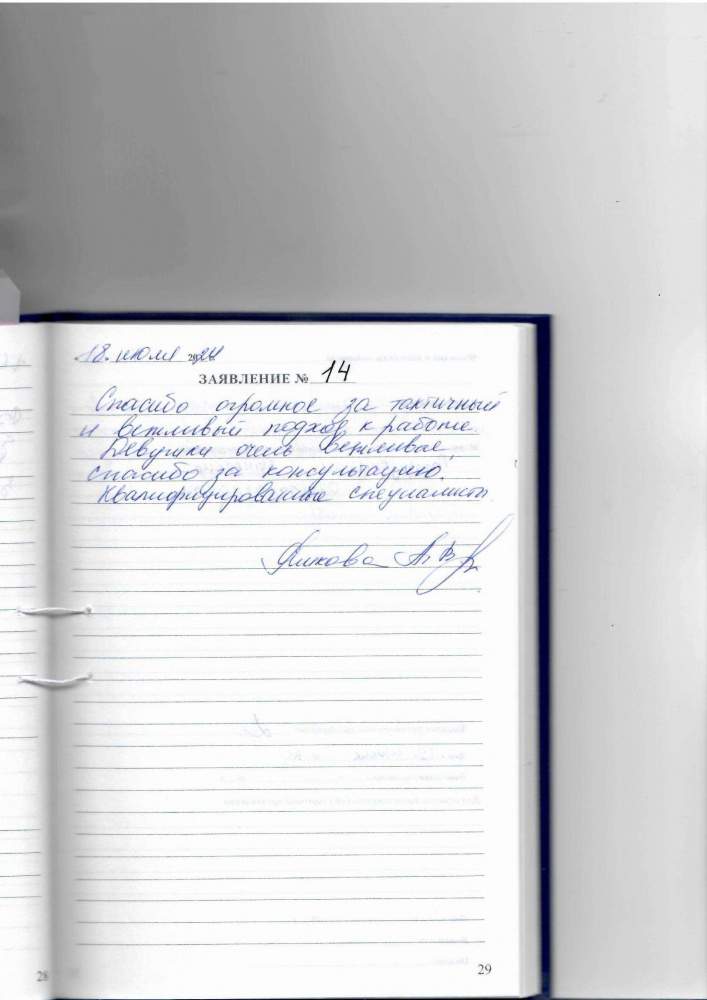 18. июля 2024
ЗАЯВЛЕНИЕ № 14
Спасибо огромное за тактичный
и вежливый подход к работе.
Девушки очень вежливые,
спасибо за консультацию.
Квалифицированные специалисты.
А.В.
28
29